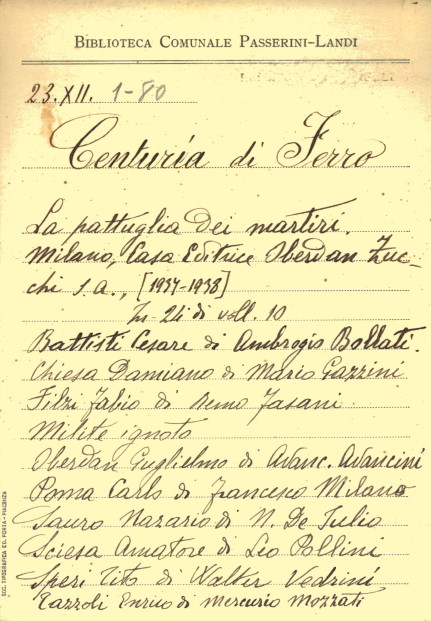 BIBLIOTECA COMUNALE PASSERINI-LANDI
23.XII. 1-80
Centuria di Ferro
La pattuglia dei martiri.
Milano, Casa Editrice Oberdan Zuc-
chi s.a., [1937-1938]
In 24i di voll. 10
Battisti Cesare di Ambrogio Bollati.
Chiesa Damiano di Mario Gazzini
Filzi Fabio di Remo Fasani
Milite ignoto
Oberdan Guglielmo di Avanc. Avancini
Poma Carlo di Francesco Milano
Sauro Nazario di N. De Tulio
Sciesa Amatore di Leo Pollini
Speri Tito di Walter Vedrini
Tazzoli Enrico di Mercurio Mozzati
SOC. TIPOGRAFICA ED. PORTA - PIACENZA